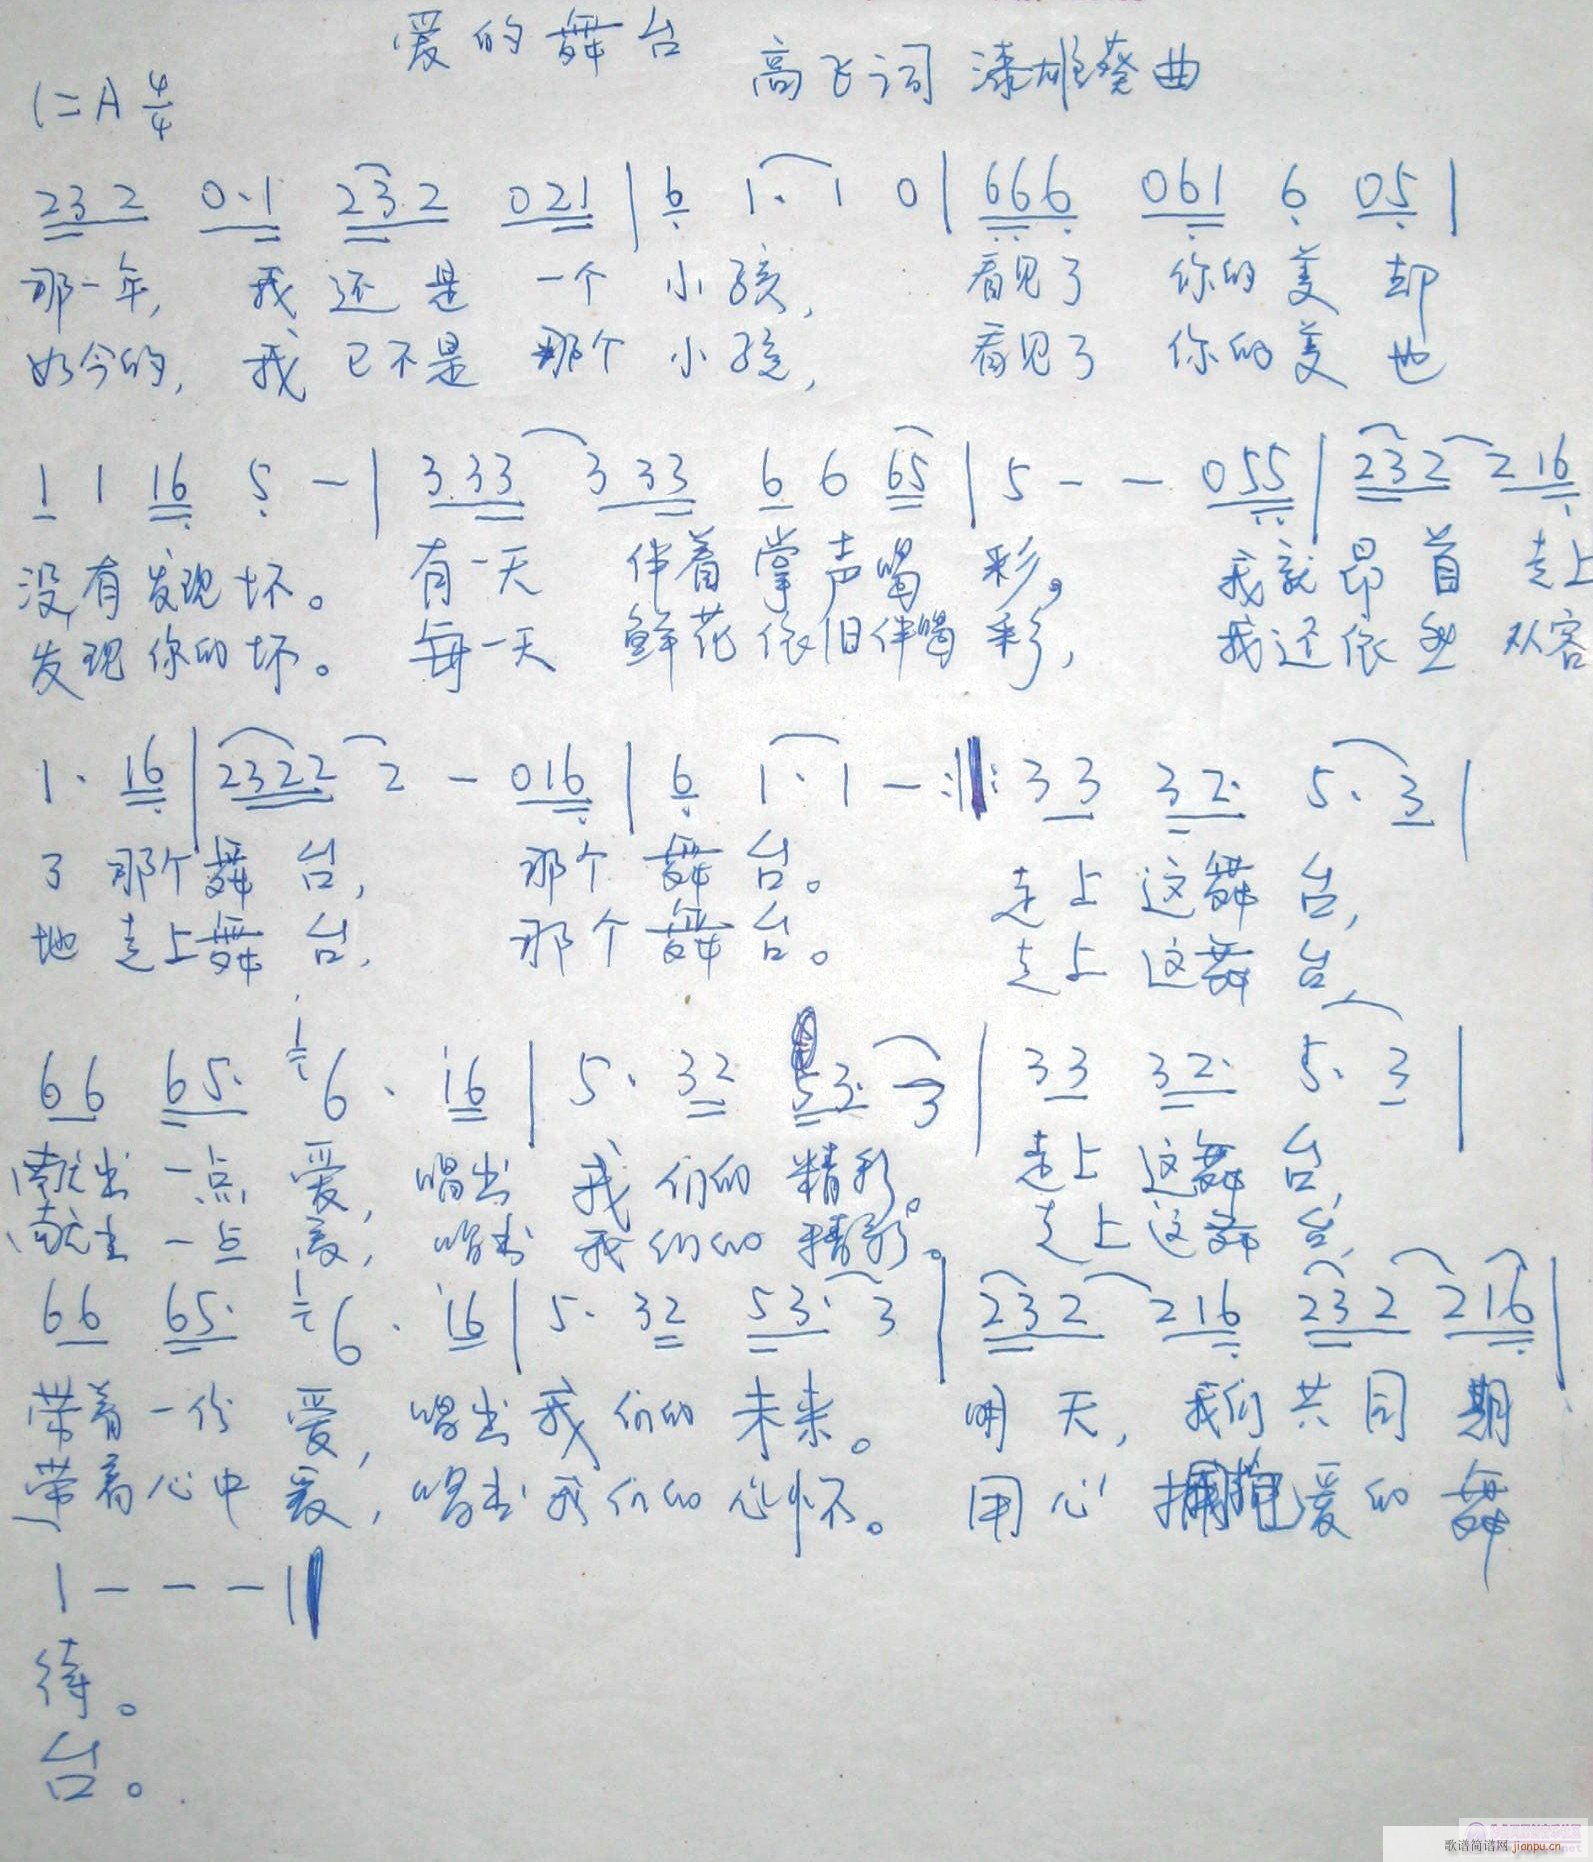 爱的舞台
高飞词 漆雄葵曲
1=A 4/4
232 0·1 232 021 | 6 1· 1 0 | 666 061 6 05 |
那一年, 我还是 一个 小孩, 看见了 你的美 却
如今的, 我已不是 那个 小孩, 看见了 你的美 也
1 1 16 5 - | 3.33 3 33 6 6 65 | 5 - - 055 | 232 2 16
没有发现坏。 有一天 伴着掌声喝彩。 我就昂首 走上
发现你的坏。 每一天 鲜花依旧伴喝彩, 我还依然 从容
1· 16 | 2322 2 - 016 | 6 1· 1 - :||: 33 32· 5· 3 |
了 那个舞台, 那个舞台。 走上这舞台,
地 走上舞台, 那个舞台。 走上这舞台,
66 65· 1 6· 16 | 5· 32 53· 3 | 33 32· 5· 3 |
献出一点爱, 唱出 我们的精彩。 走上这舞台,
献出一点爱, 唱出 我们的精彩。 走上这舞台,
66 65· 1 6· 16 | 5· 32 53· 3 | 232 216 232 216 |
带着一份爱, 唱出我们的未来。 明天, 我们共同期
带着心中爱, 唱出我们的心怀。 用心 拥抱爱的舞
1 - - - ||
待。
台。
歌谱简谱网 jianpu.cn